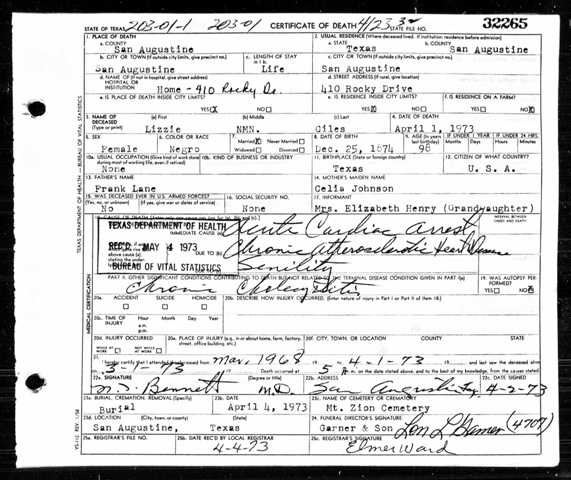 STATE OF TEXAS 203-01-1 203-01 CERTIFICATE OF DEATH 4/23 STATE FILE NO. 32265
1. PLACE OF DEATH 2. USUAL RESIDENCE (Where deceased lived. If institution: residence before admission)
a. COUNTY a. STATE b. COUNTY
San Augustine Texas San Augustine
b. CITY OR TOWN (If outside city limits, give precinct no.) c. LENGTH OF STAY c. CITY OR TOWN (If outside city limits, give precinct no.)
San Augustine Life San Augustine
d. NAME OF (If not in hospital, give street address) HOSPITAL OR INSTITUTION d. STREET ADDRESS (If rural, give location)
Home - 410 Rocky Dr. 410 Rocky Drive
e. IS PLACE OF DEATH INSIDE CITY LIMITS? e. IS RESIDENCE INSIDE CITY LIMITS? f. IS RESIDENCE ON A FARM?
YES X NO YES X NO YES NO X
3. NAME OF DECEASED (Type or print) (a) First (b) Middle (c) Last 4. DATE OF DEATH
Lizzie NMN. Giles April 1, 1973
5. SEX 6. COLOR OR RACE 7. Married X Never Married Widowed Divorced 8. DATE OF BIRTH 9. AGE (In years last birthday) IF UNDER 1 YEAR Months Days IF UNDER 24 HRS Hours Min.
Female Negro Dec. 25, 1874 98
10a. USUAL OCCUPATION (Give kind of work done during most of working life, even if retired) 10b. KIND OF BUSINESS OR INDUSTRY 11. BIRTHPLACE (State or foreign country) 12. CITIZEN OF WHAT COUNTRY?
None Texas U. S. A.
13. FATHER'S NAME 14. MOTHER'S MAIDEN NAME
Frank Lane Celia Johnson
15. WAS DECEASED EVER IN U.S. ARMED FORCES? 16. SOCIAL SECURITY NO. 17. INFORMANT
(Yes, no, or unknown) (If yes, give war or dates of service)
No None Mrs. Elizabeth Henry (Grandaughter)
TEXAS DEPARTMENT OF HEALTH IMMEDIATE CAUSE (a) Acute Cardiac Arrest INTERVAL BETWEEN ONSET AND DEATH
REC'D MAY 4 1973 DUE TO (b) Chronic Atherosclerotic Heart Disease
BUREAU OF VITAL STATISTICS Senility
PART II. OTHER SIGNIFICANT CONDITIONS CONTRIBUTING TO DEATH BUT NOT RELATED TO THE TERMINAL DISEASE CONDITION GIVEN IN PART I(a) 19. WAS AUTOPSY PERFORMED?
Chronic Cholecystitis YES NO X
20a. ACCIDENT SUICIDE HOMICIDE 20b. DESCRIBE HOW INJURY OCCURRED. (Enter nature of injury in Part I or Part II of item 18)
20c. TIME OF INJURY Hour Month Day Year
a.m.
p.m.
20d. INJURY OCCURRED 20e. PLACE OF INJURY (e.g., in or about home, farm, factory, street, office building, etc.) 20f. CITY, TOWN, OR LOCATION COUNTY STATE
WHILE AT WORK NOT WHILE AT WORK
21. I hereby certify that I attended the deceased from Mar, 1968 to 4-1-73 and last saw the deceased alive
on 3-1-73 Death occurred at 5 A m. on the date stated above, and to the best of my knowledge, from the causes stated.
22a. SIGNATURE (Degree or title) 22b. ADDRESS 22c. DATE SIGNED
Bennett M.D. San Augustine, Tex 4-2-73
23a. BURIAL, CREMATION, REMOVAL (Specify) 23b. DATE 23c. NAME OF CEMETERY OR CREMATORY
Burial April 4, 1973 Mt. Zion Cemetery
23d. LOCATION (City, town, or county) (State) 24. FUNERAL DIRECTOR'S SIGNATURE
San Augustine, Texas Garner & Son Lon L Garner (4707)
25a. REGISTRAR'S FILE NO. 25b. DATE REC'D BY LOCAL REGISTRAR 25c. REGISTRAR'S SIGNATURE
4-4-73 Elmer Ward
TEXAS DEPARTMENT OF HEALTH — BUREAU OF VITAL STATISTICS
MEDICAL CERTIFICATION
VS-112 REV. 1/58